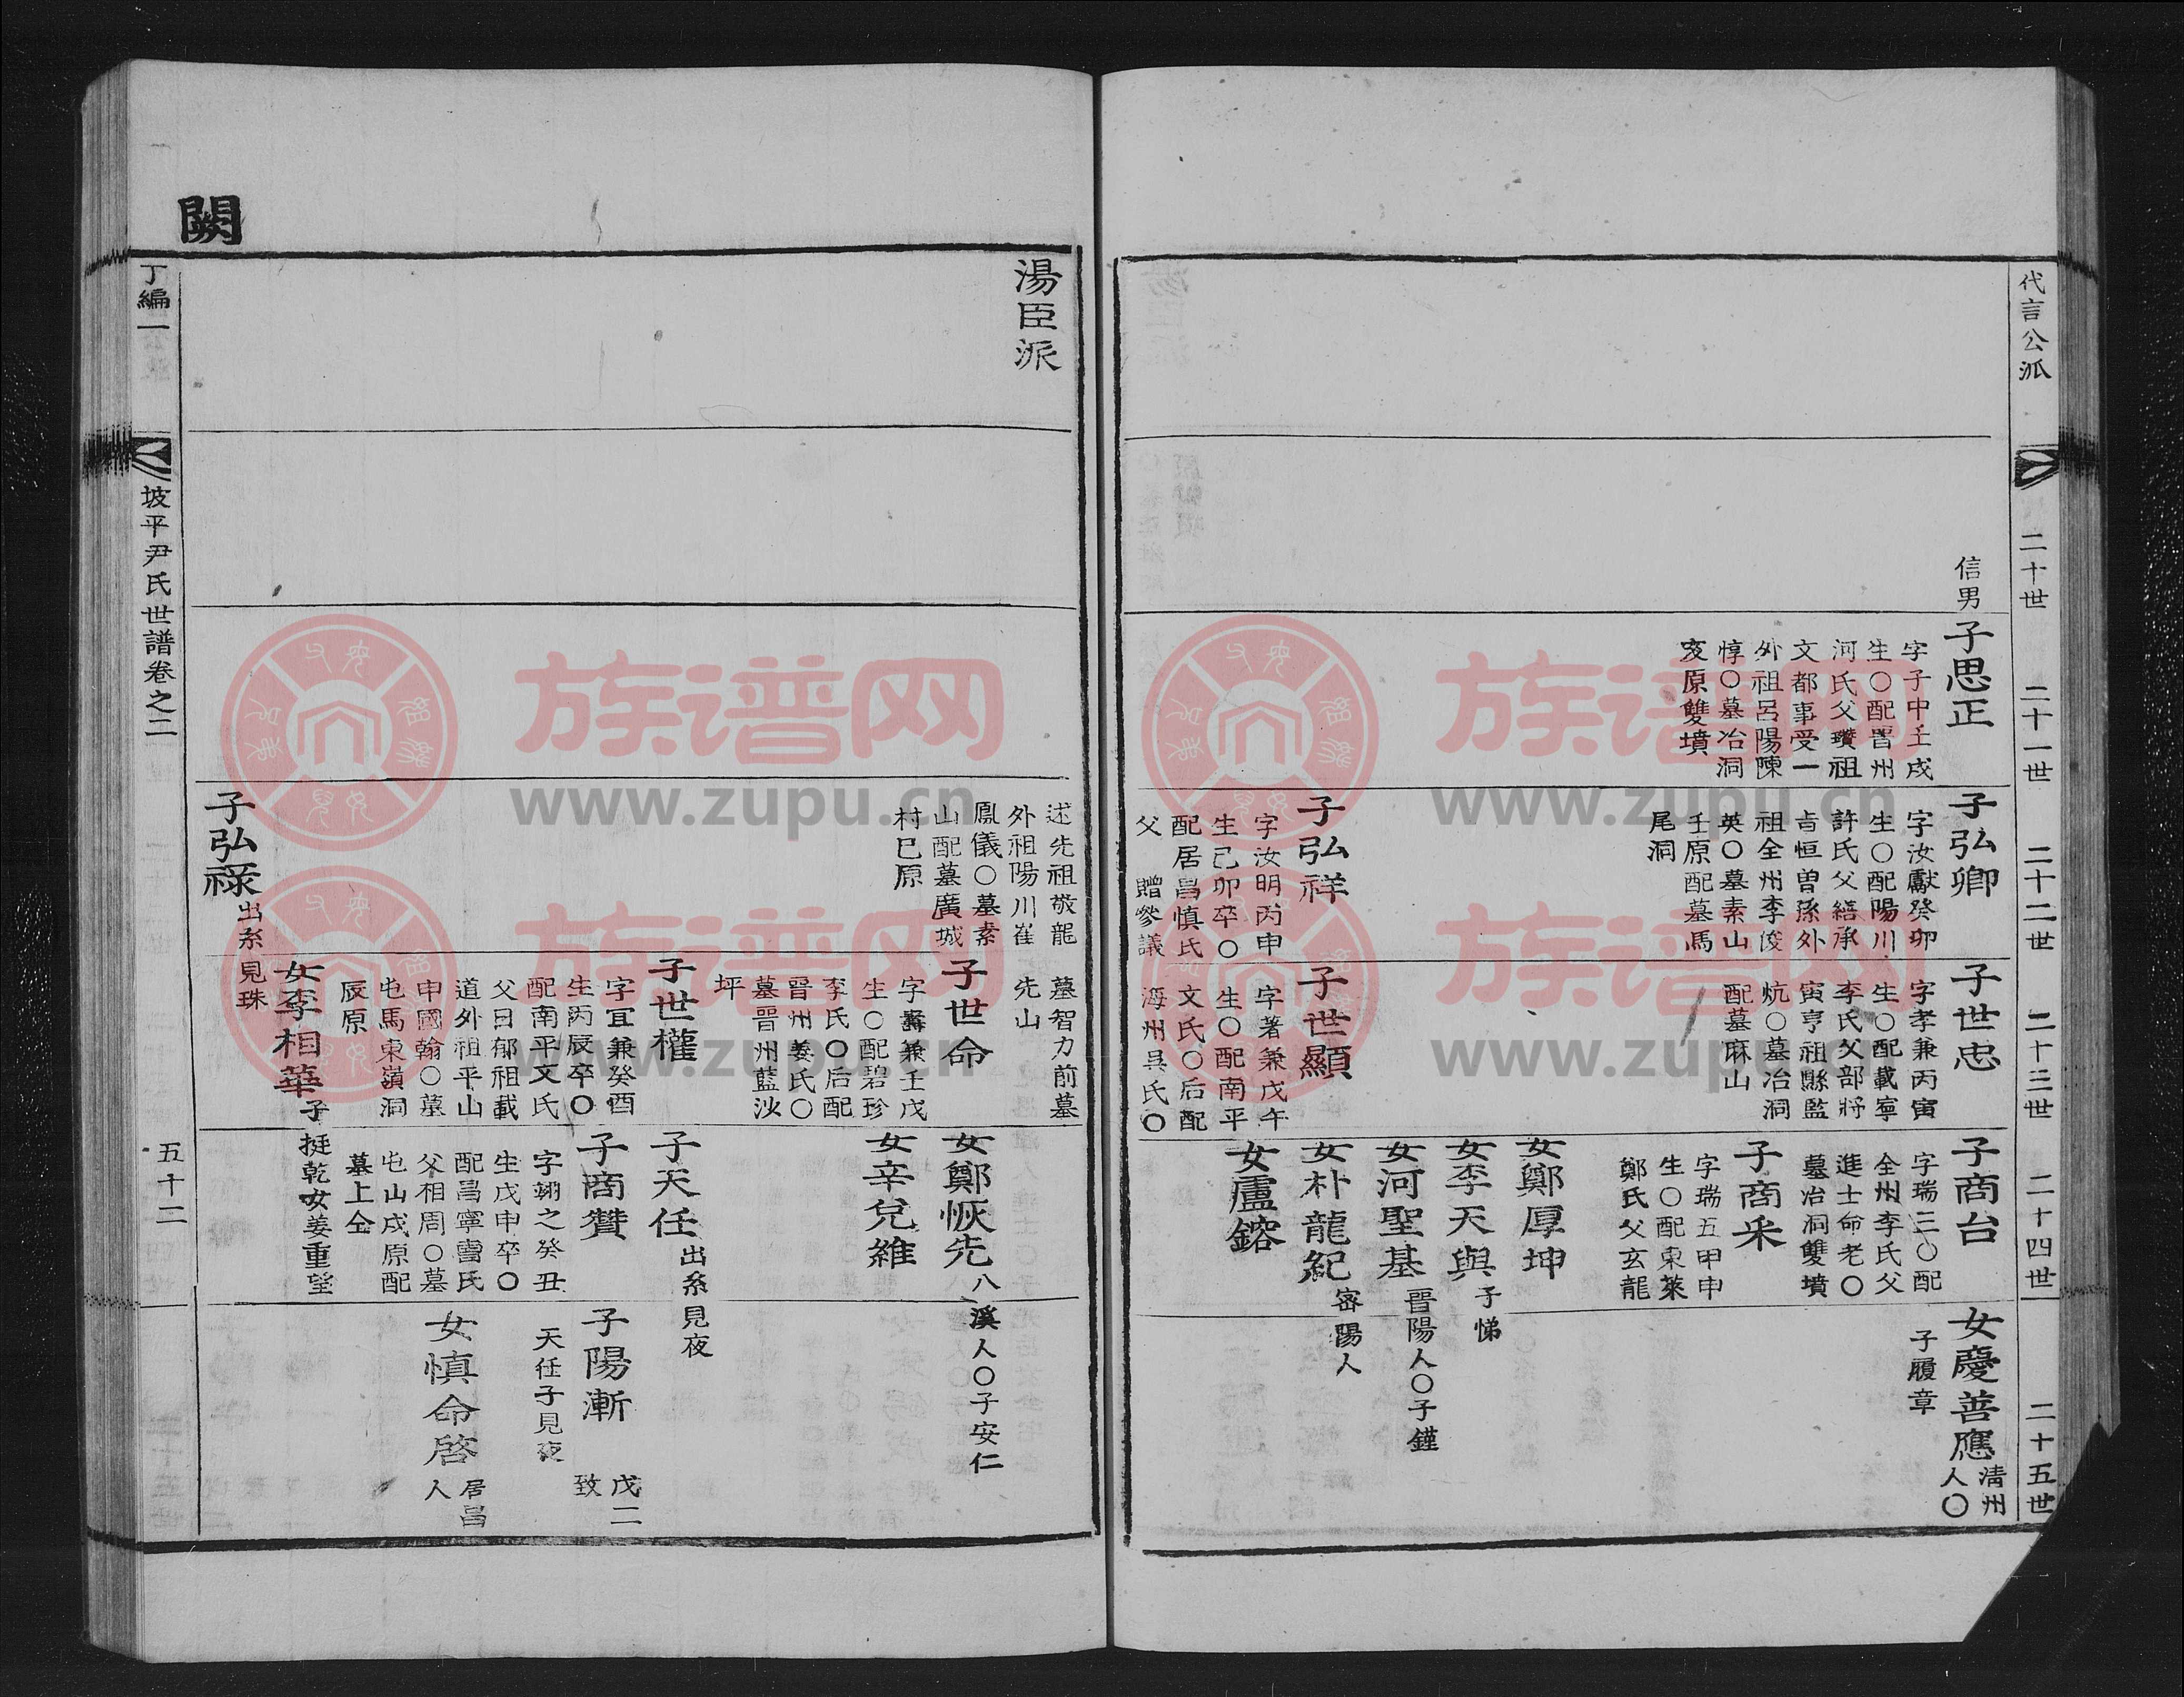 代言公派
二十世
二十一世
二十二世
二十三世
二十四世
二十五世
信男
子思正
字子中壬戌
生〇配晋州
河氏父瓚祖
文都事受一
外祖呂陽陳
惇〇墓冶洞
亥原雙墳
子弘卿
字汝獻癸卯
生〇配陽川
許氏父縉承
旨恒曽孫外
祖全州李俊
英〇墓素山
壬原配墓馬
尾洞
子世忠
字孝兼丙寅
生〇配載寧
李氏父部將
寅亨祖縣監
炕〇墓冶洞
配墓麻山
子商台
字瑞三〇配
全州李氏父
進士命老〇
墓冶洞雙墳
女慶善應
清州
人〇
子履章
子商采
字瑞五甲申
生〇配東萊
鄭氏父玄龍
女鄭厚坤
女李天與
子悌
女河聖基
晋陽人〇子鑵
女朴龍紀
密陽人
女盧鎔
子弘祥
字汝明丙申
生己卯卒〇
配居昌慎氏
父 贈參議
子世顯
字著兼戊午
生〇配南平
文氏〇后配
海州吳氏〇
湯臣派
述先祖敬龍
外祖陽川崔
鳳儀〇墓素
山配墓廣城
村巳原
墓智力前墓
先山
子世命
字壽兼壬戊
生〇配碧珍
李氏〇后配
晋州姜氏〇
墓晋州藍沙
坪
女鄭恢先
八溪人〇子安仁
女辛兌維
子世權
字宜兼癸酉
生丙辰卒〇
配南平文氏
父日郁祖載
道外祖平山
申國翰〇墓
屯馬東嶺洞
辰原
子天任
出系見夜
子商贊
字翊之癸丑
生戊申卒〇
配昌寧曺氏
父相周〇墓
屯山戌原配
墓上仝
子陽漸
戊二
致
天任子見夜
女慎命啓
居昌
人
女李相華
子挺乾女姜重望
子弘祿
出系見珠
闕
丁編一
坡平尹氏世譜卷之二
五十二
族谱网
www.zupu.cn
族谱网
www.zupu.cn
族谱网
www.zupu.cn
族谱网
www.zupu.cn